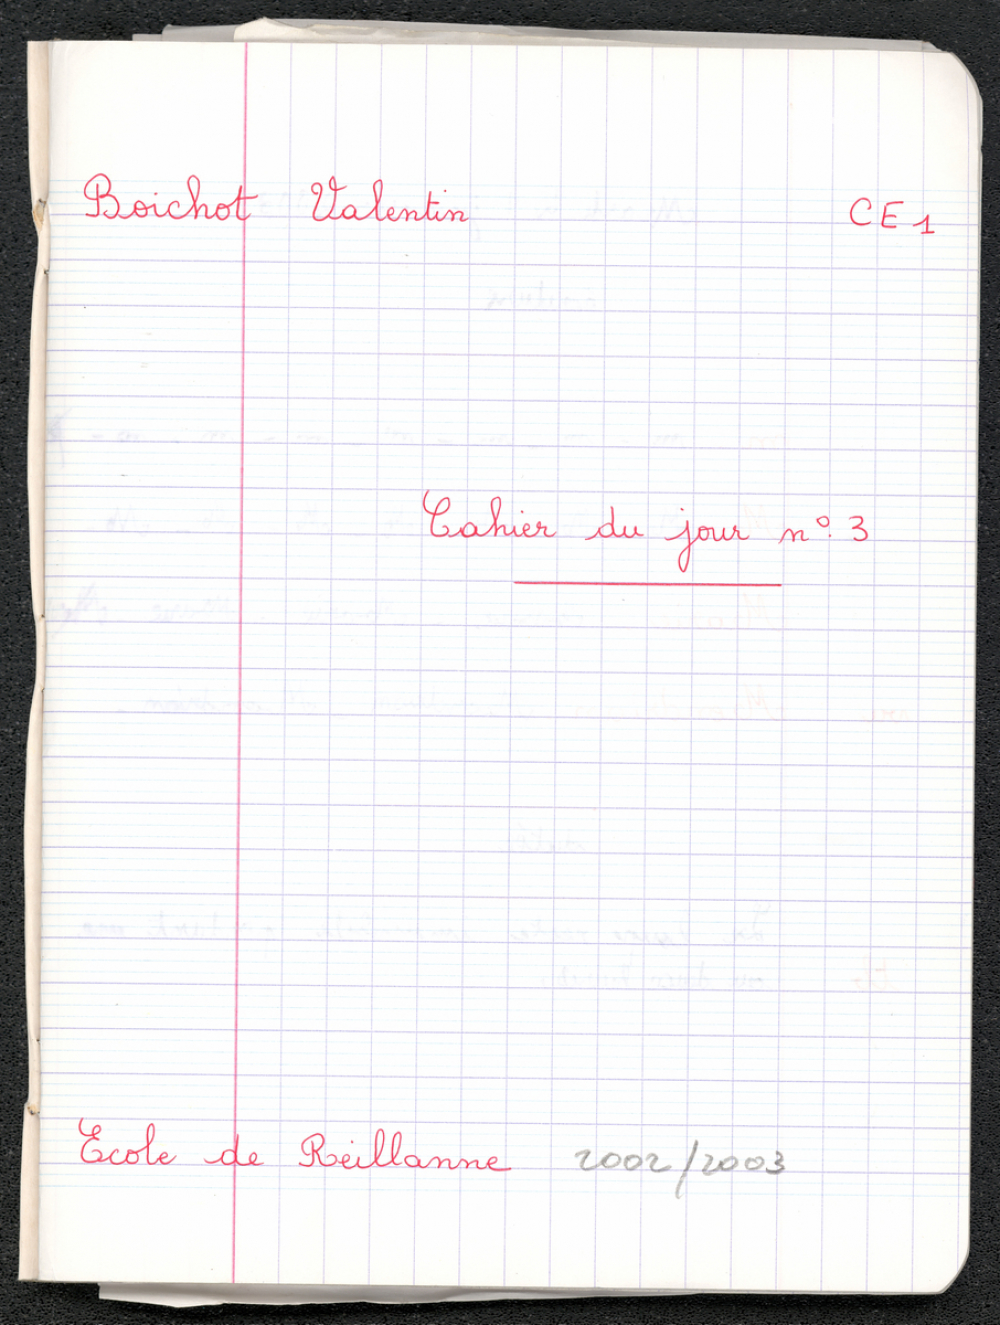 Boichot Valentin CE1
Cahier du jour n° 3
Ecole de Reillanne 2002/2003